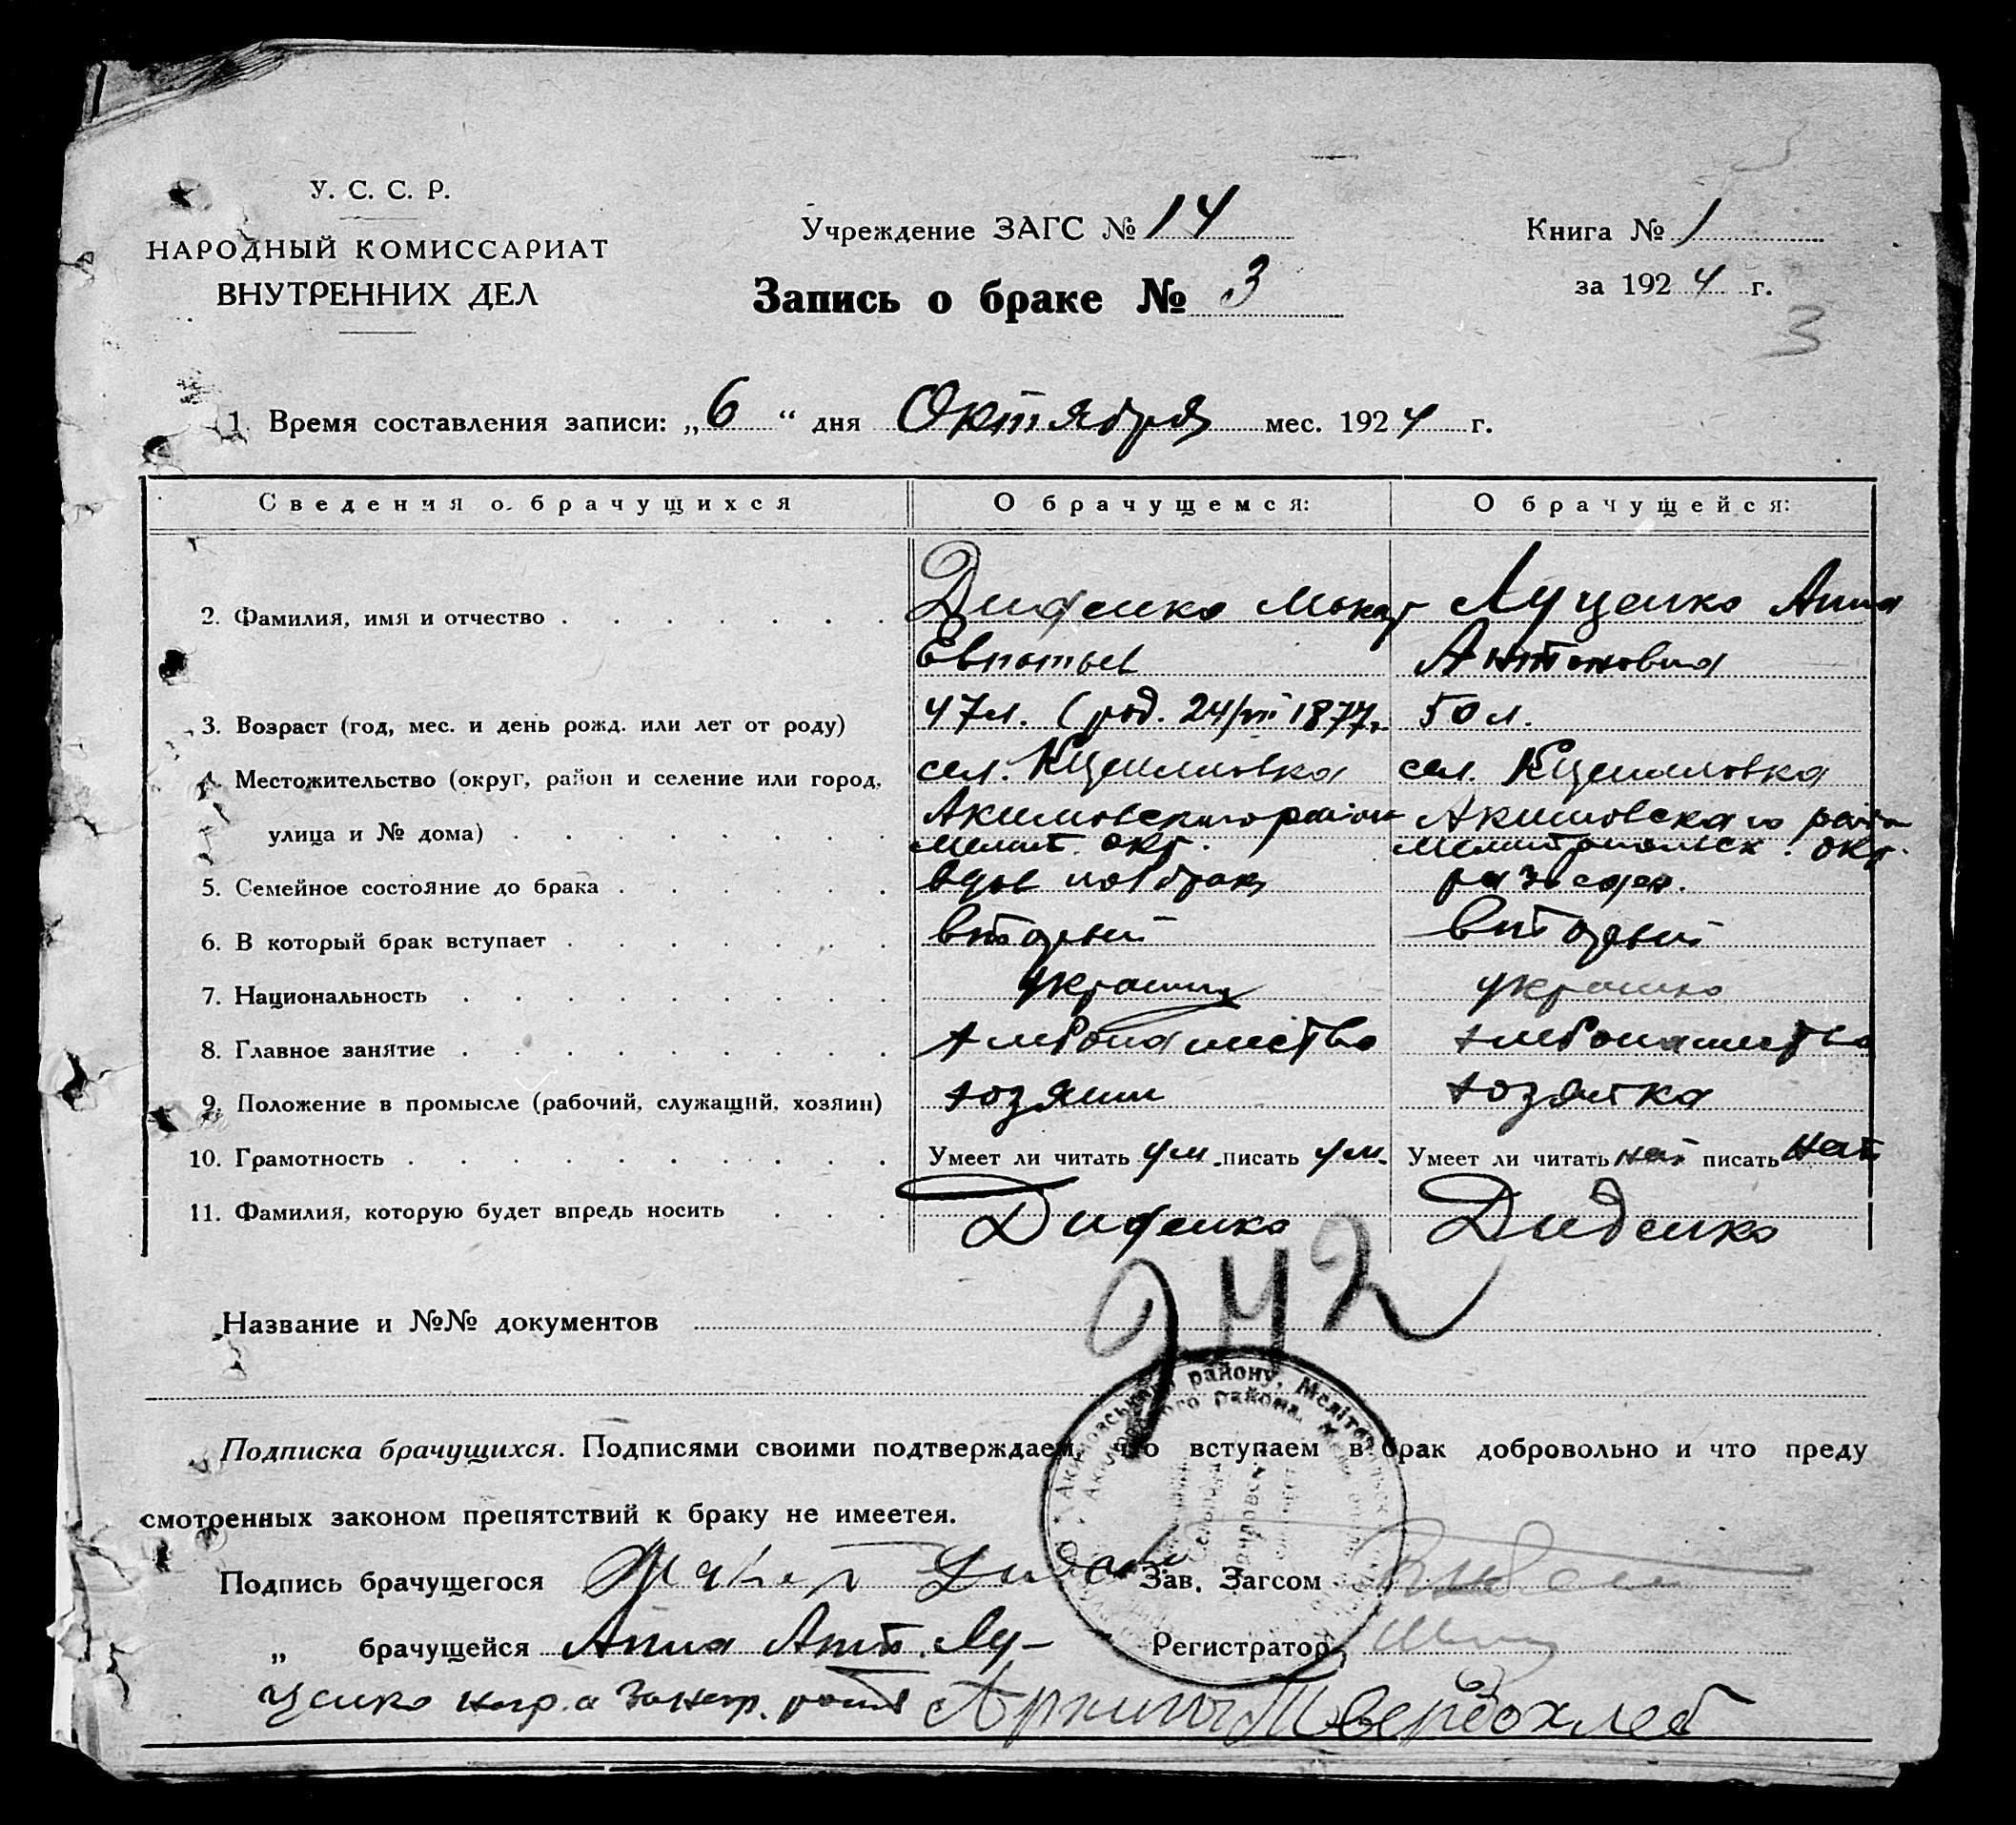 У. С. С. Р.
НАРОДНЫЙ КОМИССАРИАТ
ВНУТРЕННИХ ДЕЛ
Учреждение ЗАГС № 14
Запись о браке № 3
Книга № 1
за 1924 г.
3
1. Время составления записи: „6“ дня Октября мес. 1924 г.
Сведения о брачущихся О брачущемся: О брачущейся:
2. Фамилия, имя и отчество Диденко Макар Луценко Анна
Евпатьев Антоновна
3. Возраст (год, мес. и день рожд. или лет от роду) 47л. (род. 24/VII 1877г. 50 л.
4. Местожительство (округ, район и селение или город, сел. сел.
улица и № дома) Акимовского район Акимовского район
Мелит. окр. Мелитопольск. окр.
5. Семейное состояние до брака вдов
6. В который брак вступает вторый вторый
7. Национальность украинц украинка
8. Главное занятие хлебопашество хлебопашество
9. Положение в промысле (рабочий, служащий, хозяин) хозяин хозяйка
10. Грамотность Умеет ли читать ум. писать ум. Умеет ли читать нет писать нет
11. Фамилия, которую будет впредь носить Диденко Диденко
242
Название и №№ документов
Подписка брачущихся. Подписями своими подтверждаем, что вступаем в брак добровольно и что преду
смотренных законом препятствий к браку не имеется.
Подпись брачущегося Макар Диденко Зав. Загсом
„ брачущейся Анна Ант. Лу- Регистратор
ценко негр. а за негр. Твердохлеб
Акимовського району, Меліто
Акимовского района,